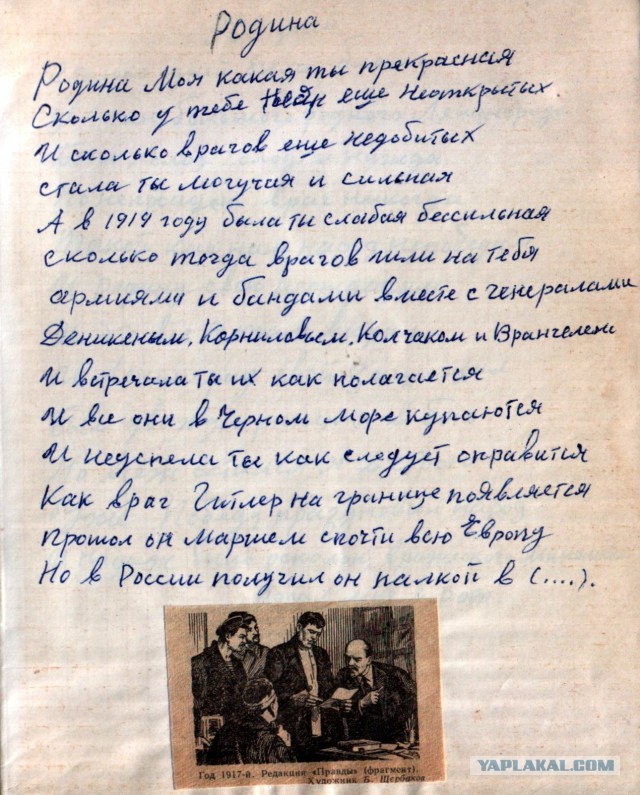 Родина
Родина Моя какая ты прекрасная
Сколько у тебе еще неоткрытых.
И сколько врагов еще недобитых
стала ты могучая и сильная
А в 1919 году была ты слабая бессильная
сколько тогда врагов лили на тебя
армиями и бандами вместе с генералами
Деникеным, Корниловьем, Колчаком и Врангелем
И встречала ты их как полагается
И все они в Черном море купаются
И неуспела ты как следует оправится
Как враг Гитлер на границе появляется
прошол он Маршем спочти всю Европу
Но в России получил он палкой в (....).
Год 1917-й. Редакция «Правды» (фрагмент).
Художник Б. Щербаков
YAPLAKAL.COM